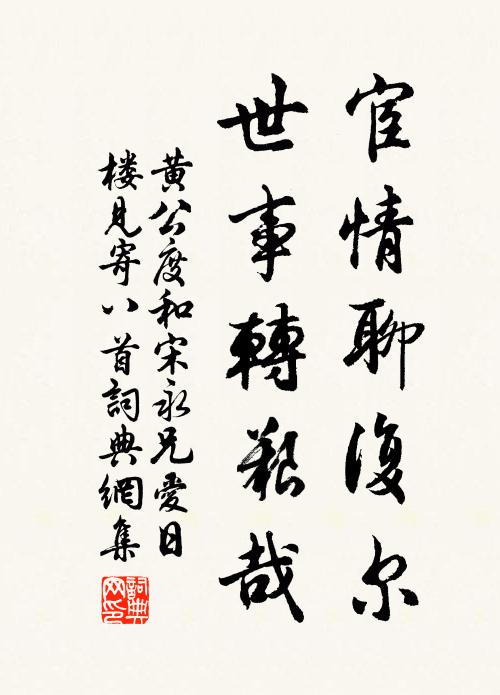 宦情聊復尔
世事轉艱哉
黄公度和宋永兄愛日
楼見寄八首詞典網集
詞典網印